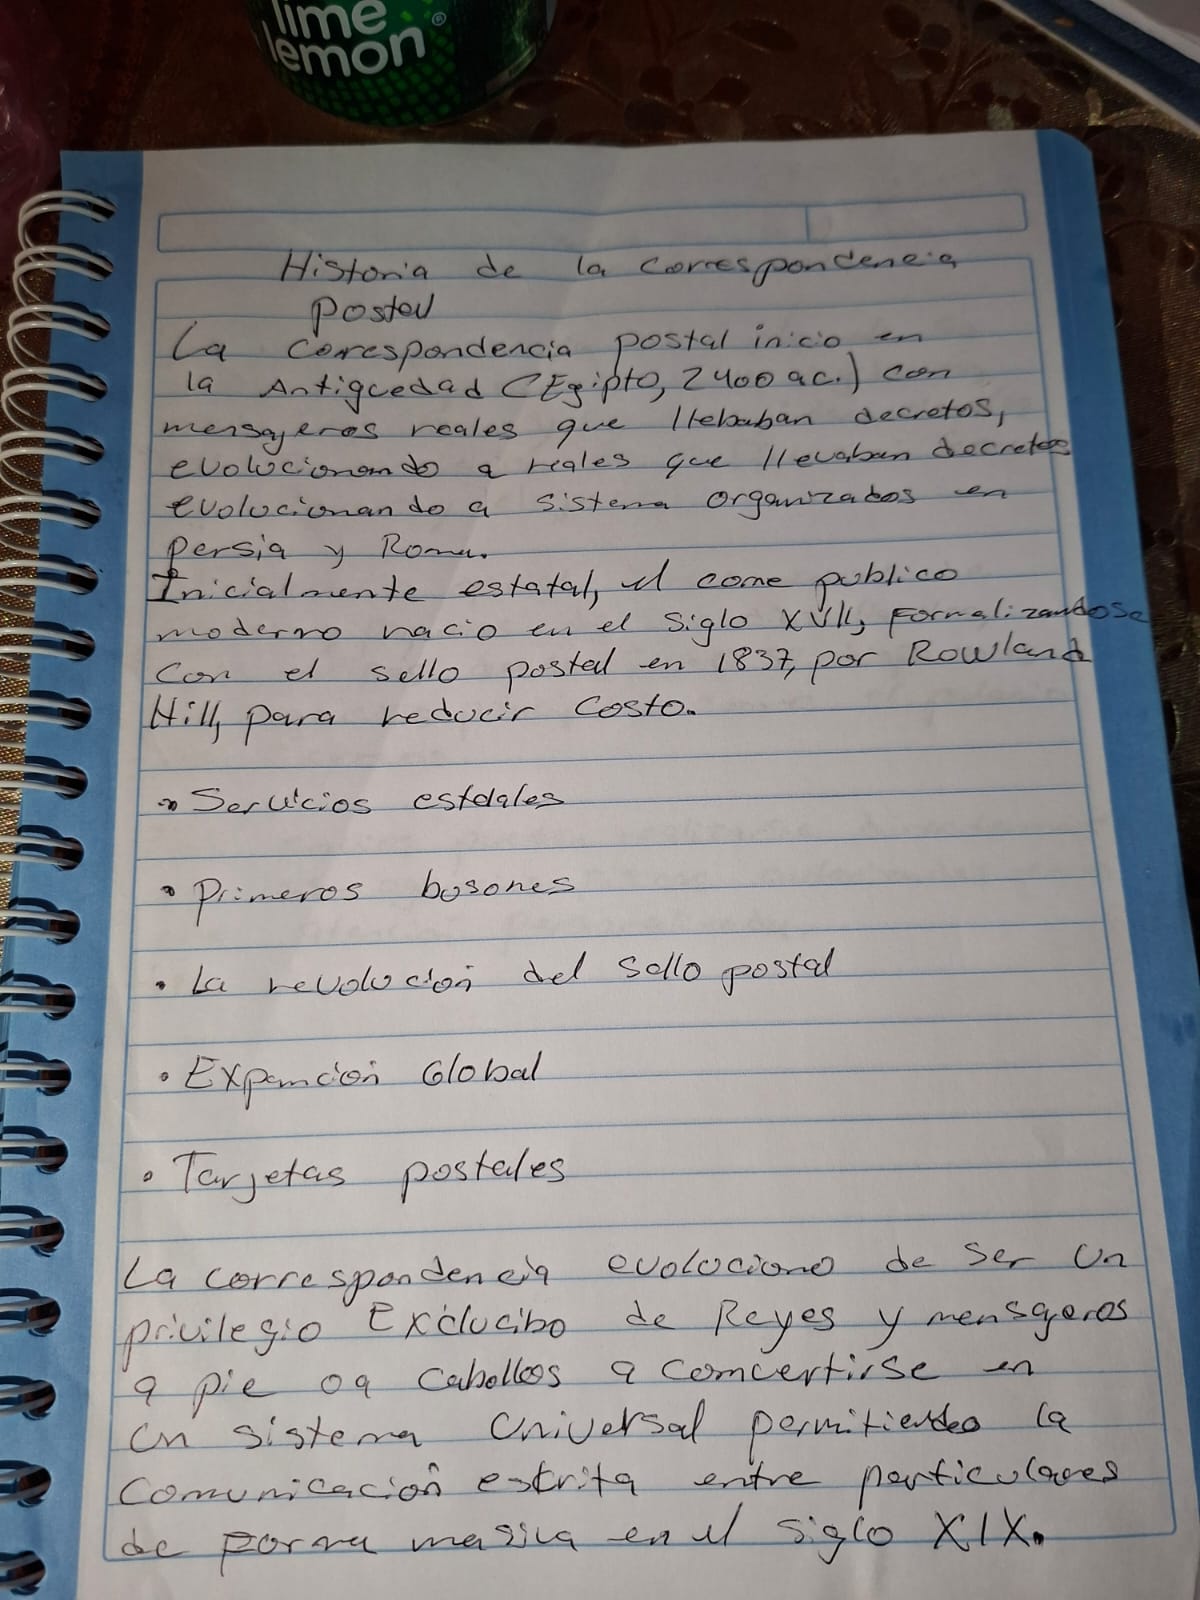 lime
lemon®
Historia de la correspondencia
Postal
La correspondencia postal inicio en
la Antiguedad (Egipto, 2400 ac.) con
mensajeros reales que llebaban decretos,
evolucionando a reales que llevaban decretos
evolucionando a sistema organizados en
Persia y Roma.
Inicialmente estatal, el come publico
moderno nacio en el siglo XVII, Formalizandose
con el sello postal en 1837, por Rowland
Hill, para reducir costo.
• Servicios estatales
• Primeros busones
• La revolución del sello postal
• Expanción Global
• Tarjetas postales
La correspondencia evoluciono de ser un
privilegio Exclucibo de Reyes y mensajeros
a pie oa caballos a comcertirse en
un sistema Universal permitiendo la
comunicación estrita entre particulares
de porma masiva en el siglo XIX.